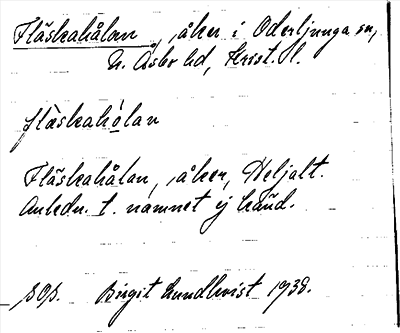 Fläskahålan, åker i Oderljunga sn,
N. Åsbo hd, Krist. l.
flàskahólan
Fläskahålan, åker, Heljalt.
Anledn. t. namnet ej känd.
sOs. Birgit Lundkvist 1938.